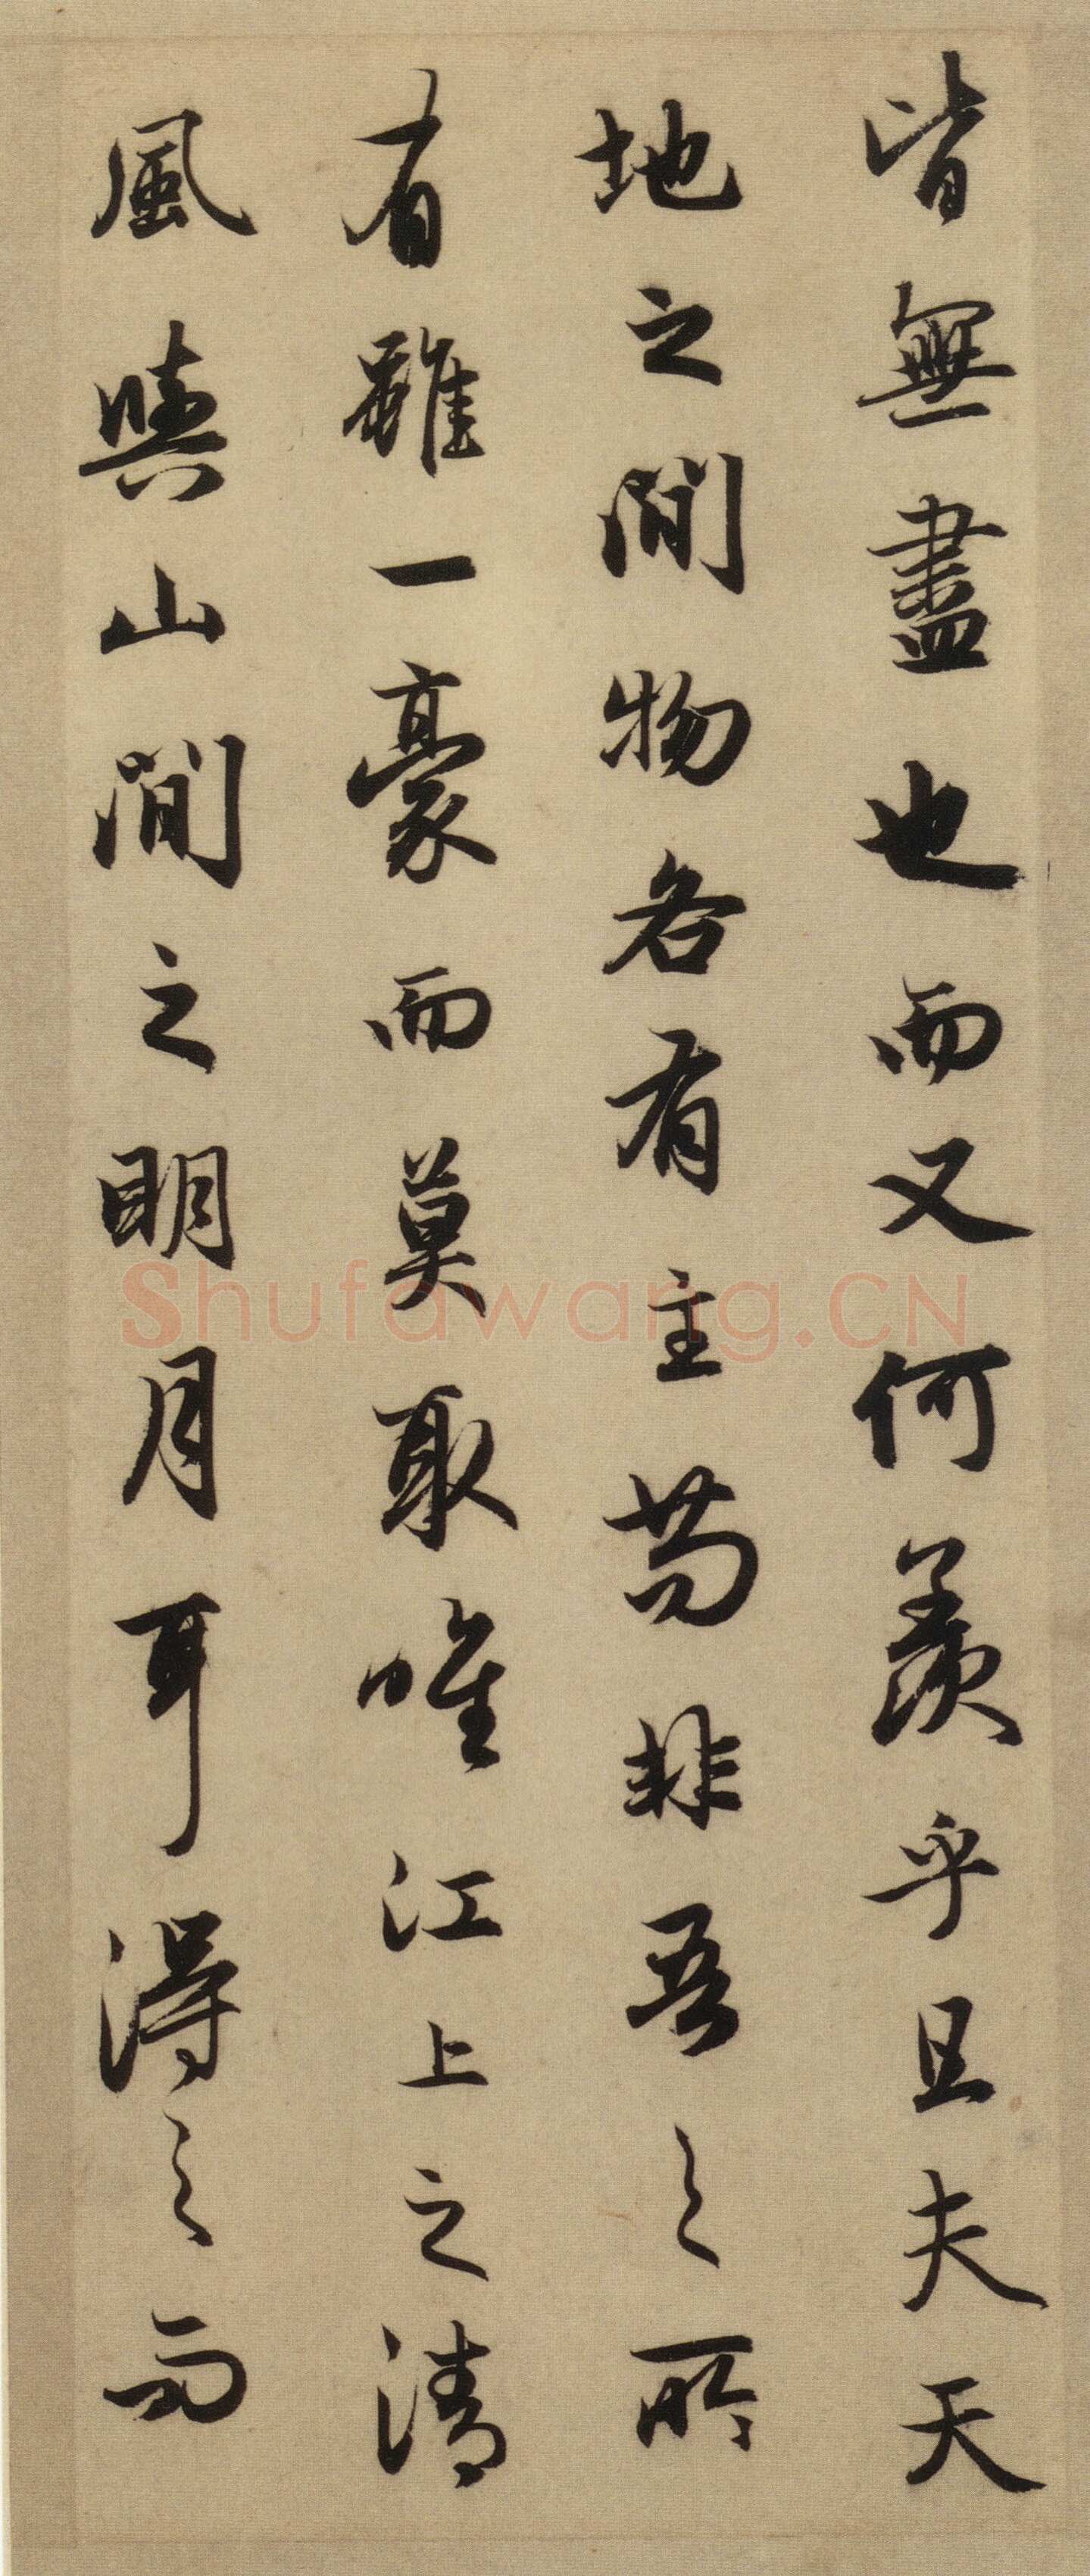 皆無盡也而又何羨乎且夫天
地之間物各有主茍非吾之所
有雖一豪而莫取唯江上之清
風與山間之明月耳得之而
Shufawang.CN